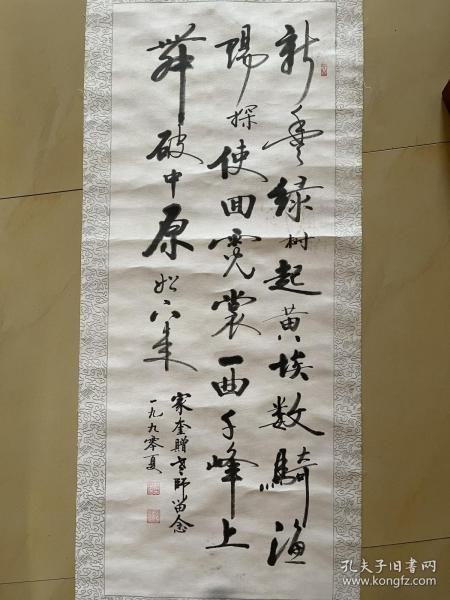 新豐绿树起黄埃数騎渔
陽探使回霓裳一曲千峰上
舞破中原始下来
家奎贈老師留念
一九九零夏
孔夫子旧书网
www.kongfz.com